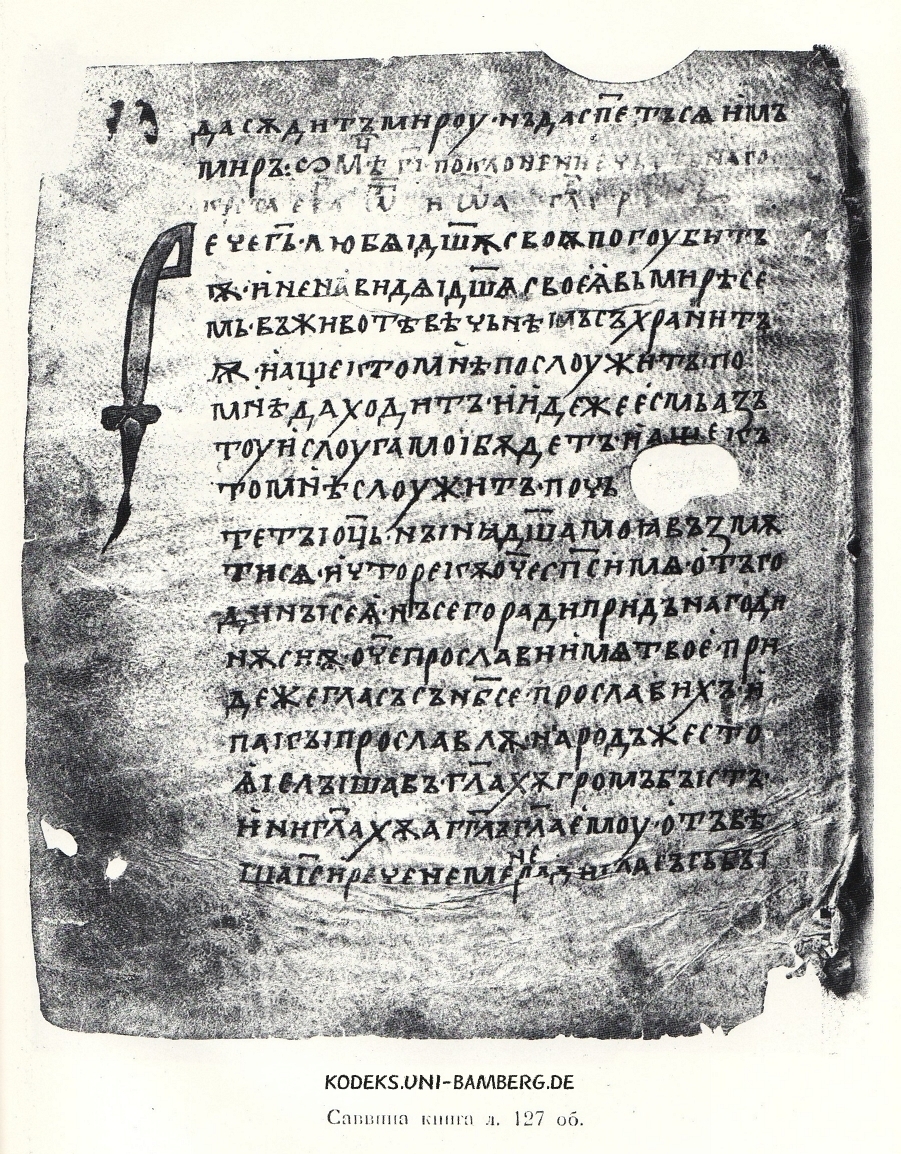 дасѫдитъмироу·нъдасп͠етъсѧимъ
миръ:
ечег͠ъ·любѧ́ıд͠шѫсвоѭпогоубитъ
ѭ·иненавидѧıд͠шѧсвоеѩ́вьмирѣсе
мь·въживотѣвѣчьнѣıмьсъхранитъ
ѭ·нащеıстомнѣпослоужитъ·по
мнѣдаходитъ·иидежеесмьазъ
тоуислоугамоıбѫдетъ·
томнѣслоужитъ·почь
тетъıоц͠ь·нъıнꙗд͠шамоꙗвъзмѫ
тисѧ·ичторекѫоч͠есп͠симѧ·отъго
динъıсеѩ·нъсегорадипридънагоди
нѫсиѭ·оч͠епрославиимѧтвое·при
дежегласъсън͠бсе·прославихъ·и
пакъıпрославлѭ·народъжесто
ѩıслъıшавъ·г͠лахѫгромъбъıстъ·
ини͠глахѫаг͠глъг͠лаемоу·отъвѣ
шаı͠сиречене
KODEKS.UNI-BAMBERG.DE
Саввина книга л. 127 об.